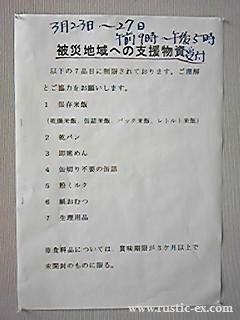 3月23日〜27日
午前9時〜午後5時
被災地域への支援物資受付
以下の7品目に制限されております。ご理解
とご協力をお願いします。
1 保存米飯
(乾燥米飯、缶詰米飯、パック米飯、レトルト米飯)
2 乾パン
3 即席めん
4 缶切り不要の缶詰
5 粉ミルク
6 紙おむつ
7 生理用品
※食料品については、賞味期限が3ヶ月以上で
未開封のものに限る。
www.rustic-ex.com